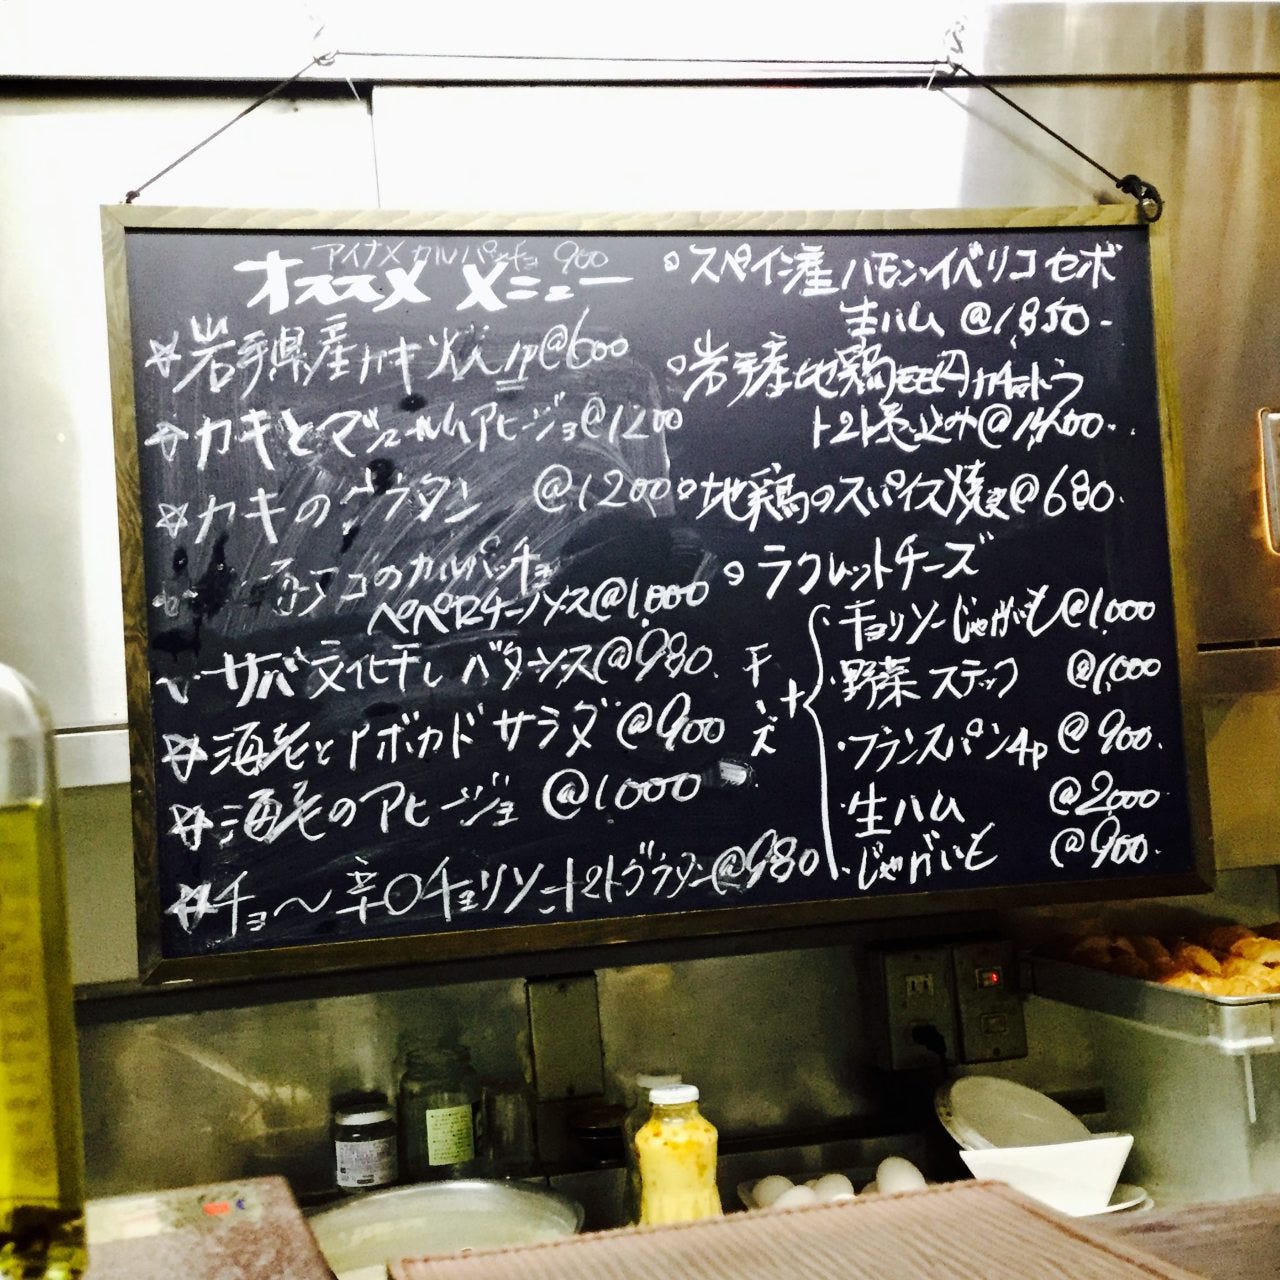 アイナメカルパッチョ 900
オススメ メニュー
☆岩手県産カキ 1p@600
☆カキとマッシュルームアヒージョ@1200
☆カキのグラタン @1200
コのカルパッチョ
ペペロチーノソース@1,000
サバ文化干しバターソース@980.
☆海老とアボカドサラダ@900
☆海老のアヒージョ @1,000
☆チョ〜辛〇チョリソートマトグラタン@980
○スペイン産ハモンイベリコセボ
生ハム @1,850-
○岩手産地鶏モモ肉カチャトラ
トマト煮込み@1,400-
○地鶏のスパイス焼き@680.
○ラクレットチーズ
チーズ
+
・チョリソーじゃがいも@1,000
・野菜スティック @1,000
・フランスパン4p @900.
・生ハム @2000
・じゃがいも @900.